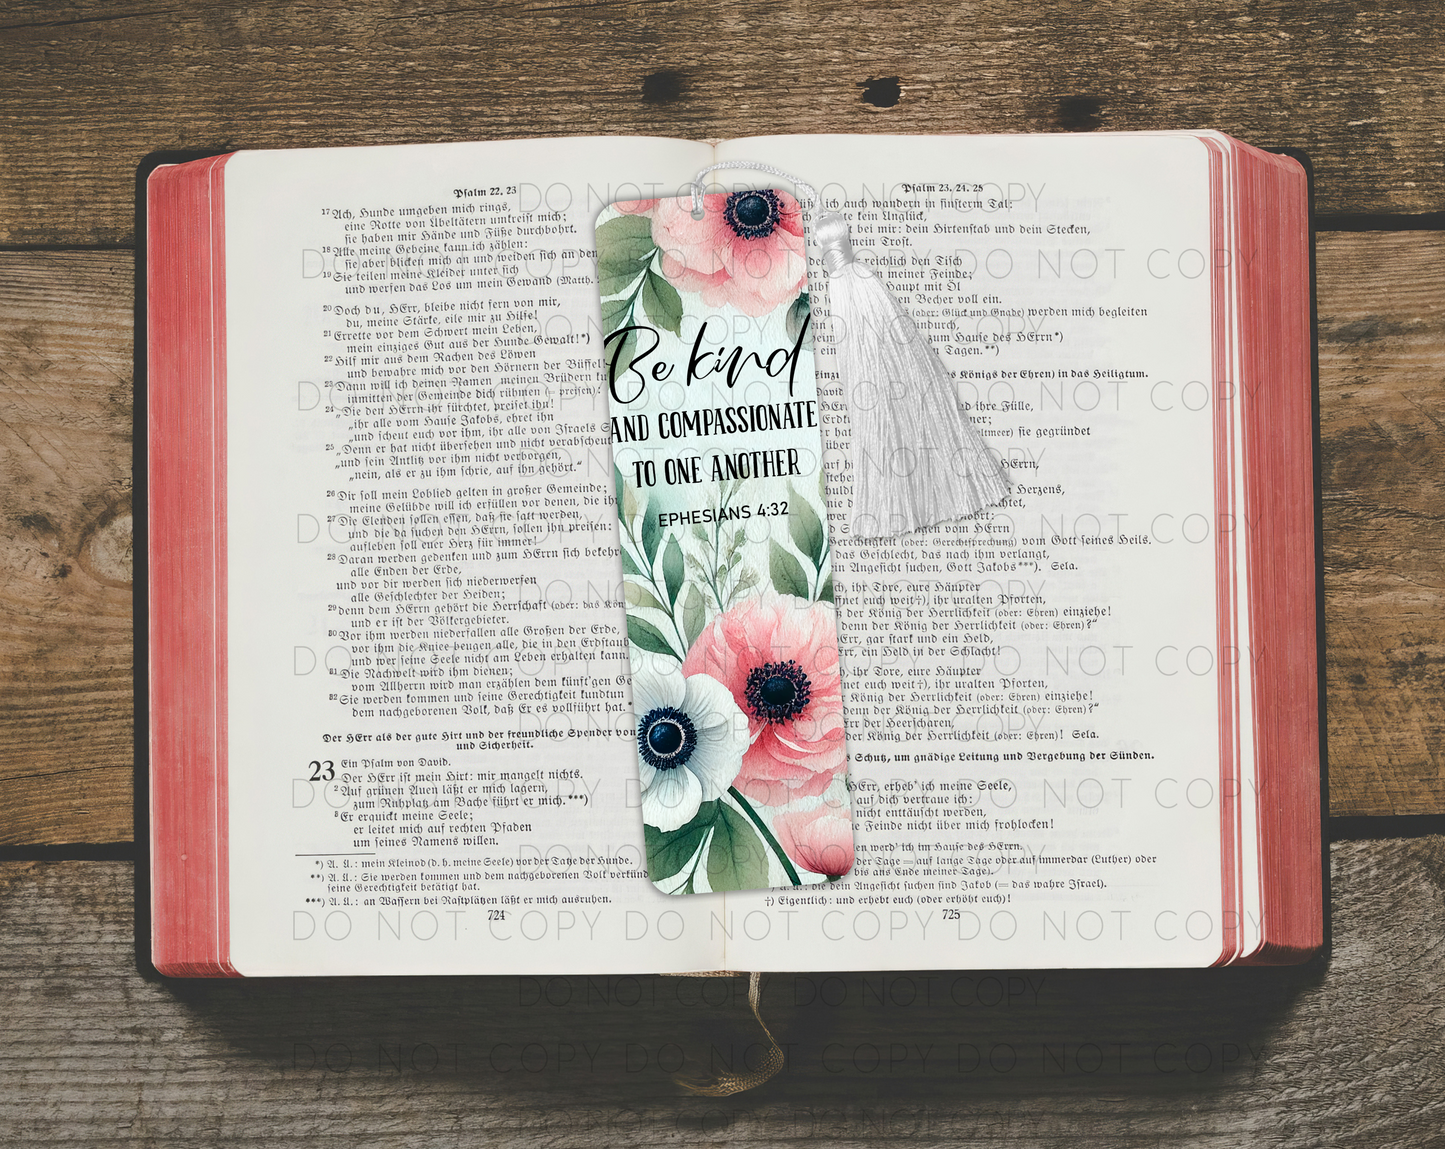 Psalm 22. 23
17 Ach, Hunde umgeben mich rings,
eine Rotte von Übeltätern umkreist mich;
sie haben mir Hände und Füße durchbohrt.
18 Alle meine Gebeine kann ich zählen:
sie aber blicken mich an und weiden sich an den
19 Sie teilen meine Kleider unter sich
und werfen das Los um mein Gewand (Matth.
20 Doch du, HErr, bleibe nicht fern von mir,
du, meine Stärke, eile mir zu Hilfe!
21 Errette vor dem Schwert mein Leben,
mein einziges Gut aus der Hunde Gewalt!*)
22 Hilf mir aus dem Rachen des Löwen
und bewahre mich vor den Hörnern der Büffel!
23 Dann will ich deinen Namen meinen Brüdern
inmitten der Gemeinde dich rühmen (= preisen).
24 „Die den HErrn ihr fürchtet, preiset ihn!
„ihr alle vom Hause Jakobs, ehret ihn
„und scheut euch vor ihm, ihr alle von Israels
25 „Denn er hat nicht übersehen und nicht verabscheut
„und sein Antlitz vor ihm nicht verborgen,
„nein, als er zu ihm schrie, auf ihn gehört.“
26 Dir soll mein Loblied gelten in großer Gemeinde;
meine Gelübde will ich erfüllen vor denen, die
27 Die Elenden sollen essen, daß sie satt werden,
und die da suchen den HErrn, sollen ihn preisen:
aufleben soll euer Herz für immer!
28 Daran werden gedenken und zum HErrn sich
alle Enden der Erde,
und vor dir werden sich niederwerfen
alle Geschlechter der Heiden;
29 denn dem HErrn gehört die Herrschaft (oder: das
und er ist der Völkergebieter.
30 Vor ihm werden niederfallen alle Großen der Erde,
vor ihm die Kniee beugen alle, die in den Erdstaub
und wer seine Seele nicht am Leben erhalten kann.
31 Die Nachwelt wird ihm dienen;
vom Allherrn wird man erzählen dem künft'gen
32 Sie werden kommen und seine Gerechtigkeit kundtun
dem nachgeborenen Volk, daß Er es vollführt hat.
Der HErr als der gute Hirt und der freundliche Spender von
und Sicherheit.
23 Ein Psalm von David.
Der HErr ist mein Hirt: mir mangelt nichts.
2 Auf grünen Auen läßt er mich lagern,
zum Ruhplatz am Bache führt er mich.***)
3 Er erquickt meine Seele;
er leitet mich auf rechten Pfaden
um seines Namens willen.
*) A. Ü.: mein Kleinod (d. h. meine Seele) vor der Tatze der Hunde.
**) A. Ü.: Sie werden kommen und dem nachgeborenen Volk
seine Gerechtigkeit betätigt hat.
***) A. Ü.: an Wassern bei Rastplätzen läßt er mich ausruhen.
724
Be kind
AND COMPASSIONATE
TO ONE ANOTHER
EPHESIANS 4:32
Psalm 23. 24. 25
ich auch wandern in finstrem Tal:
kein Unglück,
bei mir: dein Hirtenstab und dein Stecken,
mein Trost.
reichlich den Tisch
meiner Feinde;
Haupt mit Öl
Becher voll ein.
(oder: Glück und Gnade) werden mich begleiten
zum Hause des HErrn*)
Tagen.**)
Königs der Ehren) in das Heiligtum.
David
ihre Fülle,
sie gegründet
HErrn,
Herzens,
vom HErrn
(oder: Gerechtsprechung) vom Gott seines Heils.
das Geschlecht, das nach ihm verlangt,
Angesicht suchen, Gott Jakobs***). Sela.
ihr Tore, eure Häupter
euch weit†), ihr uralten Pforten,
der König der Herrlichkeit (oder: Ehren) einziehe!
denn der König der Herrlichkeit (oder: Ehren)?“
gar stark und ein Held,
ein Held in der Schlacht!
ihr Tore, eure Häupter
euch weit†), ihr uralten Pforten,
König der Herrlichkeit (oder: Ehren) einziehe!
denn der König der Herrlichkeit (oder: Ehren)?“
der Heerscharen,
der König der Herrlichkeit! Sela.
Schutz, um gnädige Leitung und Vergebung der Sünden.
HErr, erheb' ich meine Seele,
auf dich vertraue ich:
nicht enttäuscht werden,
Feinde nicht über mich frohlocken!
werd' ich im Hause des HErrn.
der Tage = auf lange Tage oder auf immerdar (Luther) oder
bis ans Ende meiner Tage).
die dein Angesicht suchen sind Jakob (= das wahre Israel).
†) Eigentlich: und erhebt euch (oder erhöht euch)!
725
DO NOT COPY DO NOT COPY
DO NOT COPY DO NOT COPY DO NOT COPY
DO NOT COPY DO NOT COPY
DO NOT COPY DO NOT COPY DO NOT COPY
DO NOT COPY DO NOT COPY
DO NOT COPY DO NOT COPY DO NOT COPY
DO NOT COPY DO NOT COPY
DO NOT COPY DO NOT COPY DO NOT COPY
DO NOT COPY DO NOT COPY
DO NOT COPY DO NOT COPY DO NOT COPY
DO NOT COPY DO NOT COPY
DO NOT COPY DO NOT COPY DO NOT COPY
DO NOT COPY DO NOT COPY
DO NOT COPY DO NOT COPY DO NOT COPY